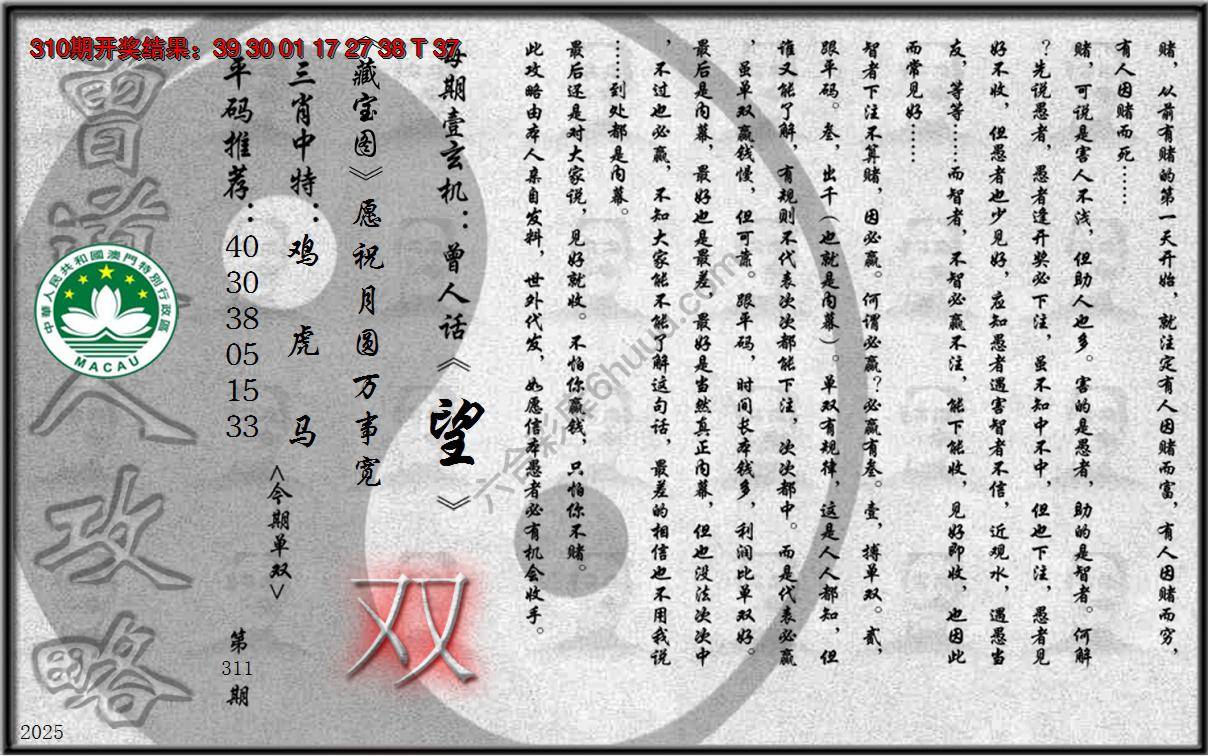 310期开奖结果：39 30 01 17 27 38 T 37
赌，从前有赌的第一天开始，就注定有人因赌而富，有人因赌而穷，
有人因赌而死……
赌，可说是害人不浅，但助人也多。害的是愚者，助的是智者。何解
？先说愚者，愚者逢开奖必下注，虽不知中不中，但也下注，愚者见
好不收，但愚者也少见好，应知愚者遇害智者不信，近观水，遇愚当
友，等等……而智者，不智必赢不注，能下能收，见好即收，也因此
而常见好……
智者下注不算赌，因必赢。何谓必赢？必赢有叁。壹，搏单双。贰，
跟平码。叁，出千（也就是内幕）。单双有规律，这是人人都知，但
谁又能了解，有规则不代表次次都能下注，次次都中。而是代表必赢
，虽单双赢钱慢，但可靠。跟平码，时间长本钱多，利润比单双好。
最后是内幕，最好也是最差，最好是当然真正内幕，但也没法次次中
，不过也必赢，不知大家能不能了解这句话，最差的相信也不用我说
……到处都是内幕。
最后还是对大家说，见好就收。不怕你赢钱，只怕你不赌。
此攻略由本人亲自发料，世外代发，如愿信本愚者必有机会收手。
每期壹玄机：曾人话《望》
《藏宝图》愿祝月圆万事宽
双
三肖中特：鸡 虎 马
<今期单双>
平码推荐：40 30 38 05 15 33
第311期
曾道人攻略
中華人民共和國澳門特別行政區
MACAU
2025
六合彩库6huuu.com